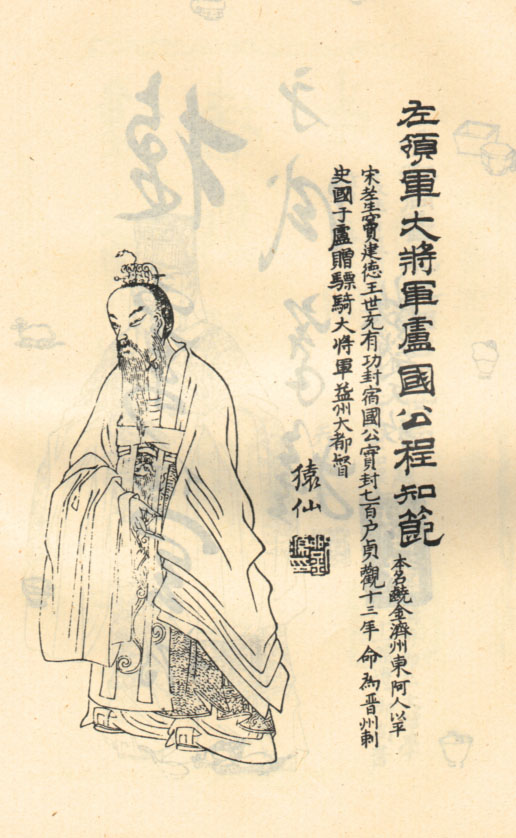 左領軍大將軍盧國公程知節
本名齩金濟州東阿人以平
宋老生竇建德王世充有功封宿國公實封七百户貞觀十三年 命為晋州刺
史國于盧贈驃騎大將軍益州大都督
猿仙